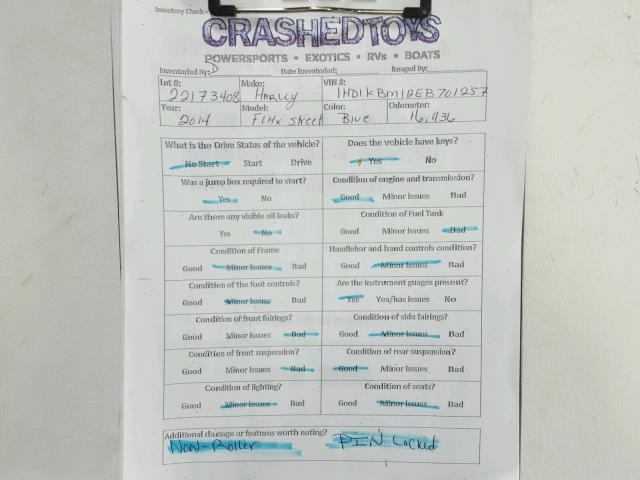 Inventory Check -
CRASHEDTOYS
POWERSPORTS • EXOTICS • RVs • BOATS
Inventoried By: D Date Inventoried: Imaged By:
Lot #: Make: VIN #:
22173408 Harley 1HD1KBM12EB701257
Year: Model: Color: Odometer:
2014 FlHx street Blue 16,436
What is the Drive Status of the vehicle? Does the vehicle have keys?
No Start Start Drive Yes No
Was a jump box required to start? Condition of engine and transmission?
Yes No Good Minor Issues Bad
Are there any visible oil leaks? Condition of Fuel Tank
Yes No Good Minor Issues Bad
Condition of Frame Handlebar and hand controls condition?
Good Minor Issues Bad Good Minor Issues Bad
Condition of the foot controls? Are the instrument guages present?
Good Minor Issues Bad Yes Yes/has Issues No
Condition of front fairings? Condition of side fairings?
Good Minor Issues Bad Good Minor Issues Bad
Condition of front suspension? Condition of rear suspension?
Good Minor Issues Bad Good Minor Issues Bad
Condition of lighting? Condition of seats?
Good Minor Issues Bad Good Minor Issues Bad
Additional damage or features worth noting?
Non-Roller PIN Locked